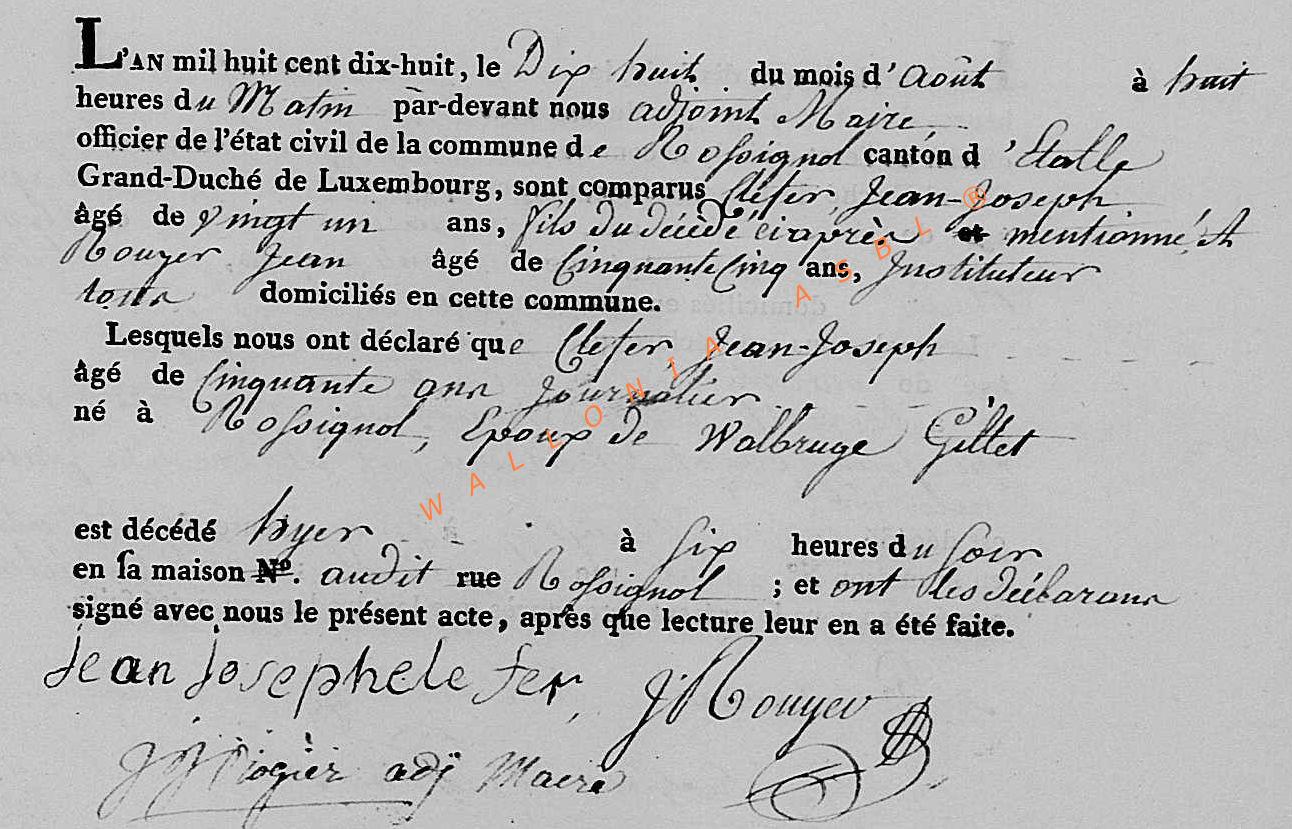 L'AN mil huit cent dix-huit, le Dix huit du mois d'Août à huit
heures du Matin par-devant nous adjoint Maire,
officier de l'état civil de la commune de Rossignol canton d'Etalle
Grand-Duché de Luxembourg, sont comparus Clefer, Jean-Joseph
âgé de vingt un ans, fils du décédé ciaprès et mentionné, et
Rouyer Jean âgé de Cinquante Cinq ans, Instituteur
tous domiciliés en cette commune.
Lesquels nous ont déclaré que Clefer, Jean-Joseph
âgé de Cinquante ans Journalier
né à Rossignol, Epoux de Walbruge Gillet
est décédé hyer à six heures du soir
en sa maison No. audit rue Rossignol ; et ont les déclarans
signé avec nous le présent acte, après que lecture leur en a été faite.
Jean Joseph clefer, J Rouyer
adj Maire
WALLONIA ASBL ®